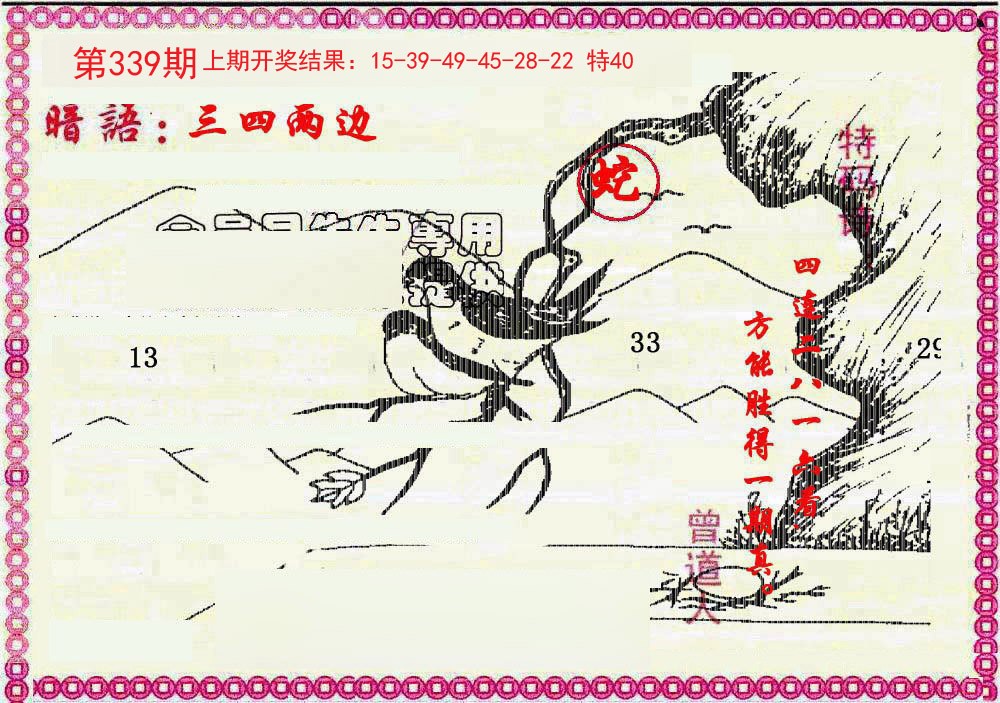 第339期 上期开奖结果：15-39-49-45-28-22 特40
暗語：三四两边
蛇
特码诗
四连二八一六看，
方能胜得一期真。
曾道人
13
33
29